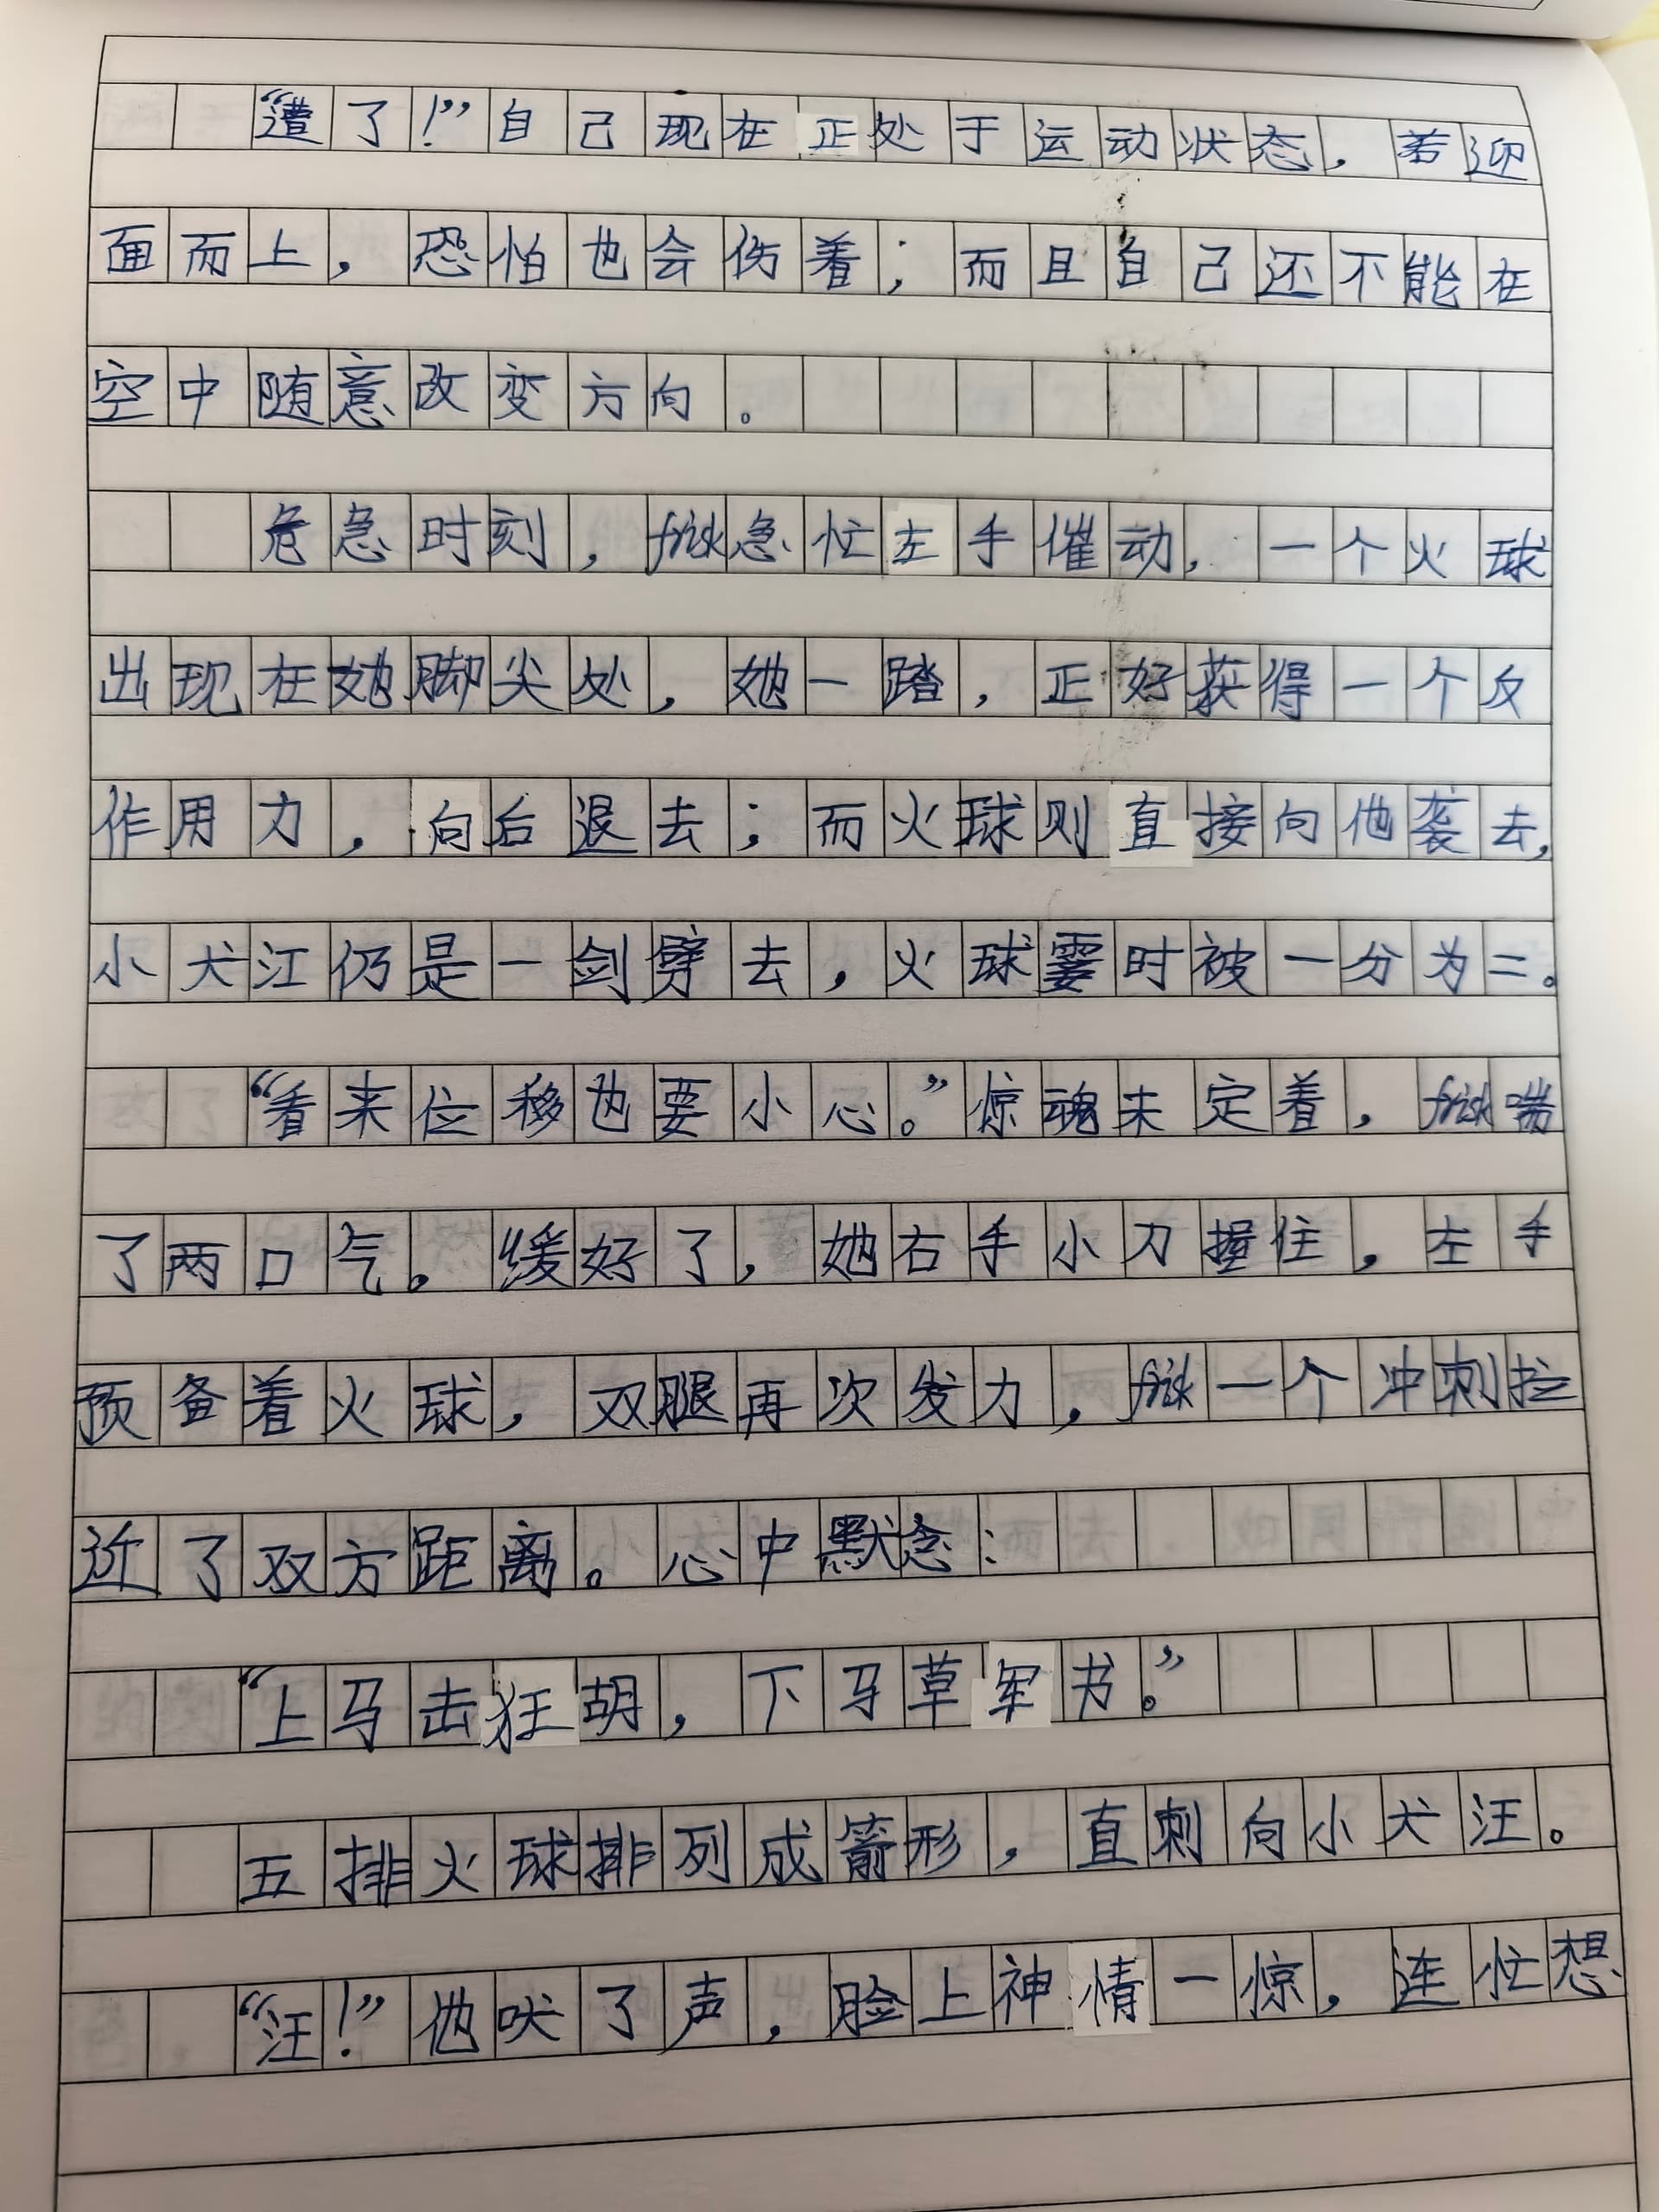 “遭了！”自己现在正处于运动状态，若迎
面而上，恐怕也会伤着；而且自己还不能在
空中随意改变方向。
危急时刻，frisk急忙左手催动，一个火球
出现在她脚尖处，她一踏，正好获得一个反
作用力，向后退去；而火球则直接向他袭去，
小犬江仍是一剑劈去，火球霎时被一分为二。
“看来位移也要小心。”惊魂未定着，frisk喘
了两口气。缓好了，她右手小刀握住，左手
预备着火球，双腿再次发力，frisk一个冲刺拉
近了双方距离。心中默念：
“上马击狂胡，下马草军书。”
五排火球排列成箭形，直刺向小犬汪。
“汪！”他吠了声，脸上神情一惊，连忙想